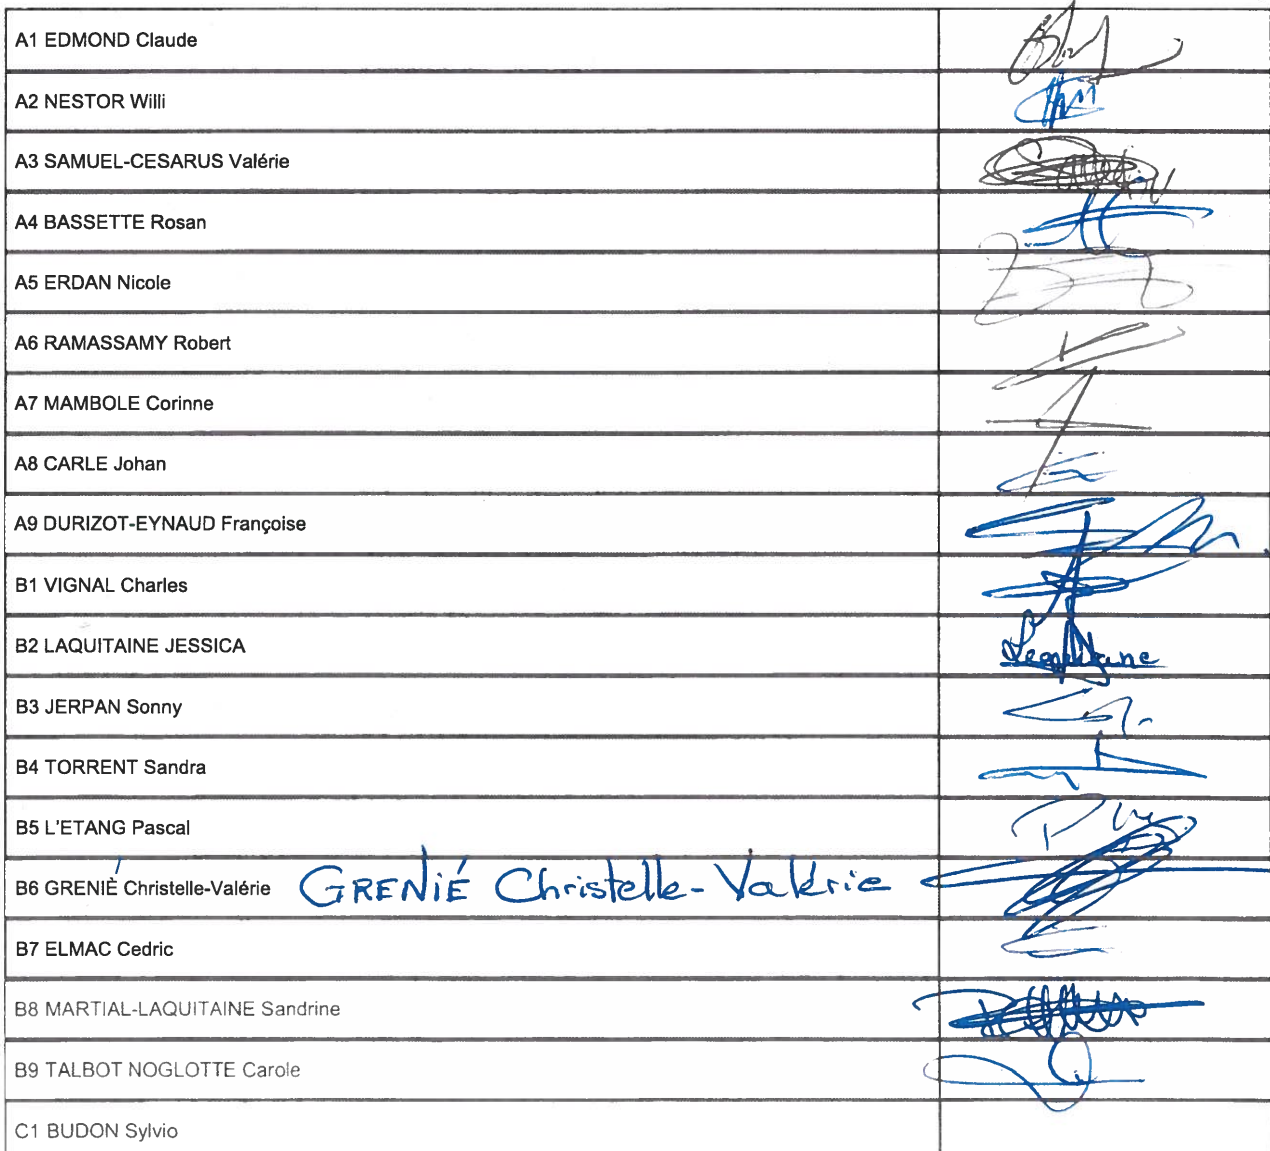 A1 EDMOND Claude
A2 NESTOR Willi
A3 SAMUEL-CESARUS Valérie
A4 BASSETTE Rosan
A5 ERDAN Nicole
A6 RAMASSAMY Robert
A7 MAMBOLE Corinne
A8 CARLE Johan
A9 DURIZOT-EYNAUD Françoise
B1 VIGNAL Charles
B2 LAQUITAINE JESSICA Laquitaine
B3 JERPAN Sonny
B4 TORRENT Sandra
B5 L'ETANG Pascal
B6 GRENIÉ Christelle-Valérie GRENIÉ Christelle-Valérie
B7 ELMAC Cedric
B8 MARTIAL-LAQUITAINE Sandrine
B9 TALBOT NOGLOTTE Carole
C1 BUDON Sylvio